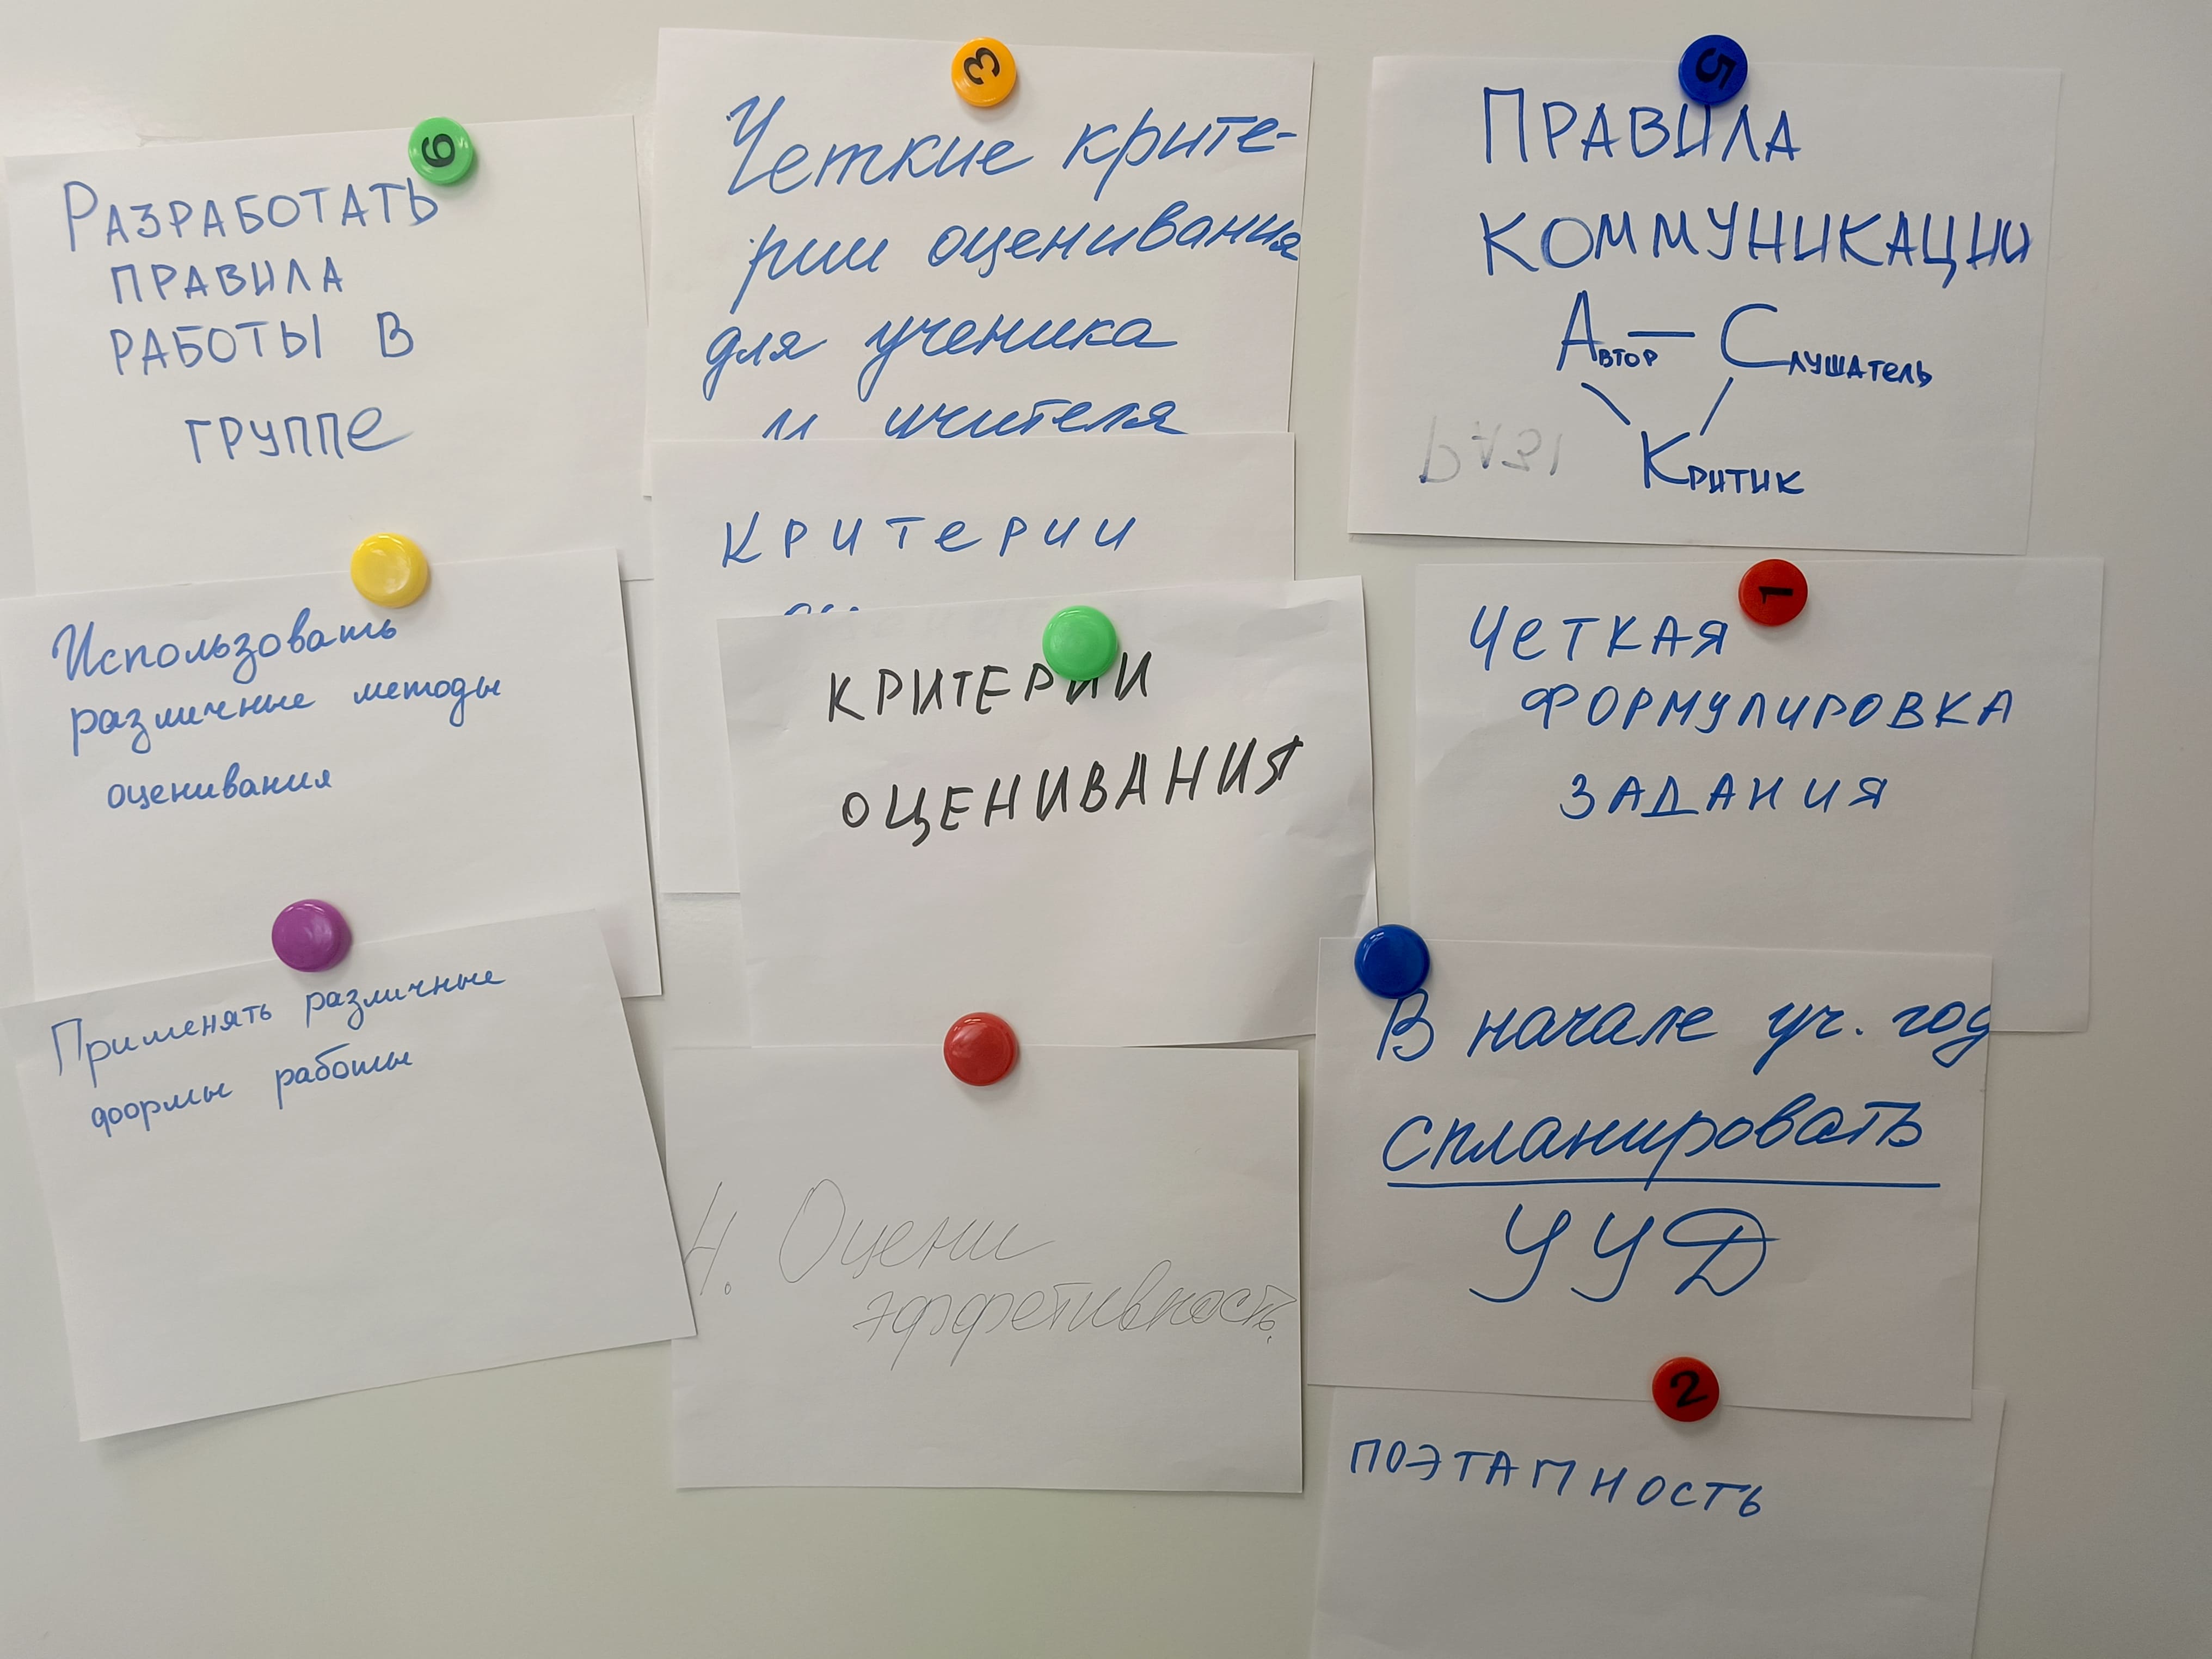 6
РАЗРАБОТАТЬ
ПРАВИЛА
РАБОТЫ В
ГРУППЕ
Использовать
различные методы
оценивания
Применять различные
формы работы
3
Четкие крите-
рии оценивания
для ученика
и учителя
КРИТЕРИИ
КРИТЕРИИ
ОЦЕНИВАНИЯ
4. Оцени
эффетивность
5
ПРАВИЛА
КОММУНИКАЦИИ
АВТОР — СЛУШАТЕЛЬ
КРИТИК
1
ЧЕТКАЯ
ФОРМУЛИРОВКА
ЗАДАНИЯ
В начале уч. год
спланировать
УУД
2
ПОЭТАПНОСТЬ